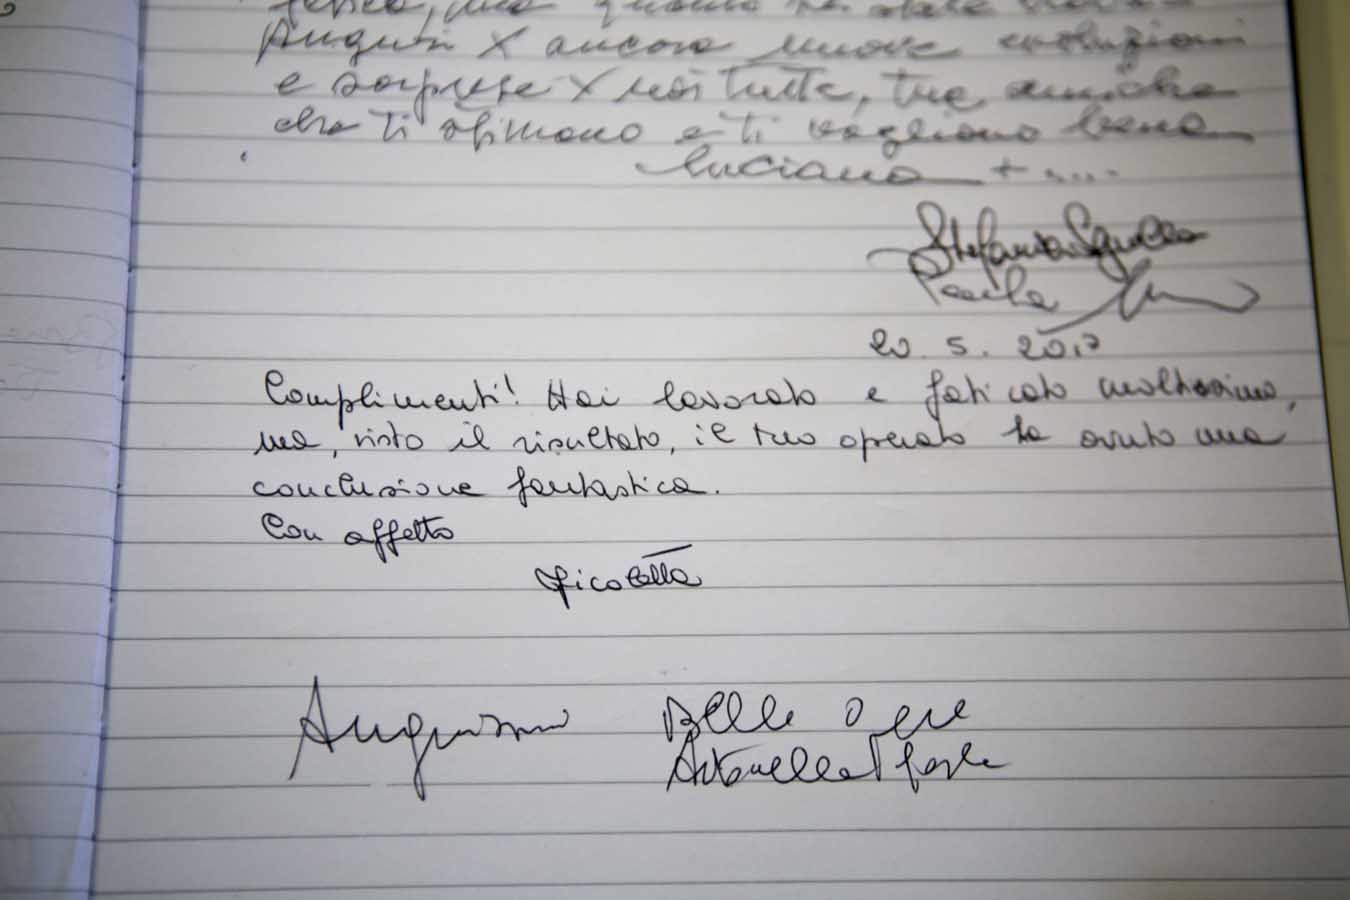 Auguri x ancora nuove evoluzioni
e sorprese x noi tutte, tue amiche
che ti stimano e ti vogliono bene
Luciana + ....
Stefania
Paola
20. 5. 2017
Complimenti! Hai lavorato e faticato moltissimo,
ma, visto il risultato, il tuo operato ha avuto una
conclusione fantastica.
Con affetto
Nicoletta
Augurissimi Belle opere
Antonella